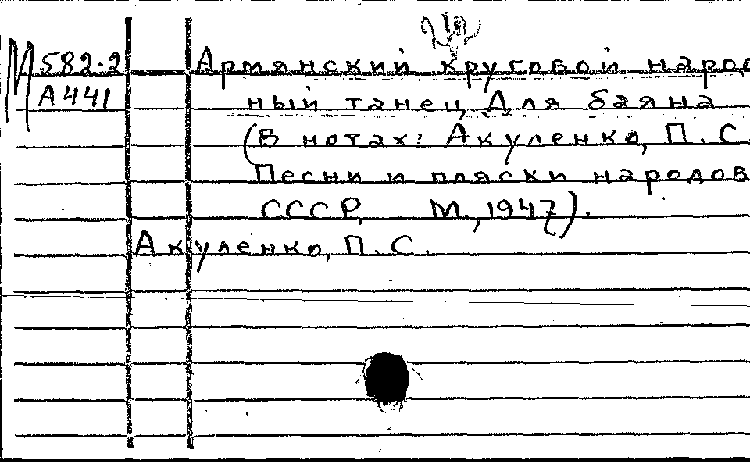 М 582.2 Армянский круговой народ
А441 ный танец. Для баяна
(В нотах: Акуленко, П.С.
Песни и пляски народов
СССР. М.,1947).
Акуленко, П.С.